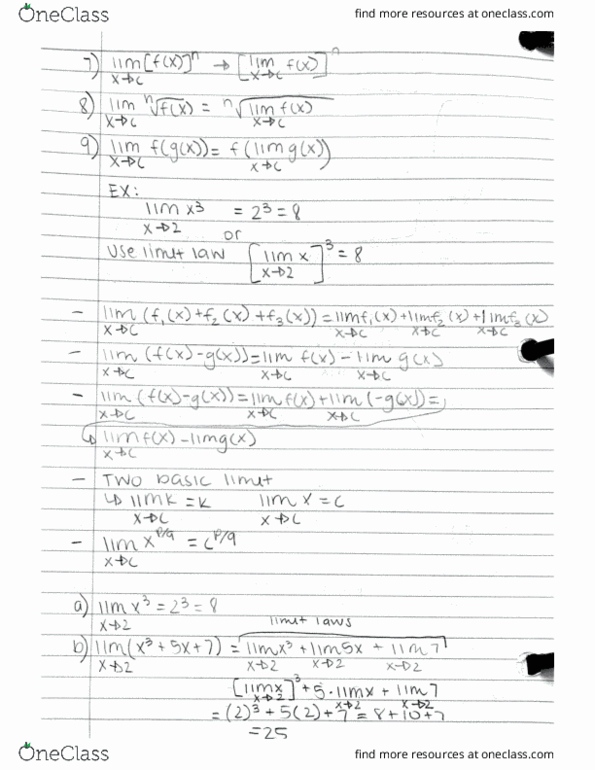 OneClass
find more resources at oneclass.com
7) lim x→c [f(x)]^n → [lim x→c f(x)]^n
8) lim x→c ⁿ√f(x) = ⁿ√lim x→c f(x)
9) lim x→c f(g(x)) = f(lim x→c g(x))
EX:
lim x→2 x³ = 2³ = 8
or
Use limit law [lim x→2 x]³ = 8
- lim x→c (f₁(x) + f₂(x) + f₃(x)) = lim x→c f₁(x) + lim x→c f₂(x) + lim x→c f₃(x)
- lim x→c (f(x) - g(x)) = lim x→c f(x) - lim x→c g(x)
- lim x→c (f(x) - g(x)) = lim x→c f(x) + lim x→c (-g(x)) =
↳ lim x→c f(x) - lim g(x)
- Two basic limit
↳ lim x→c k = k lim x→c x = c
- lim x→c x^p/q = c^p/q
a) lim x→2 x³ = 2³ = 8
limit laws
b) lim x→2 (x³ + 5x + 7) = lim x→2 x³ + lim x→2 5x + lim x→2 7
[lim x→2 x]³ + 5 · lim x→2 x + lim x→2 7
= (2)³ + 5(2) + 7 = 8 + 10 + 7
= 25
OneClass
find more resources at oneclass.com